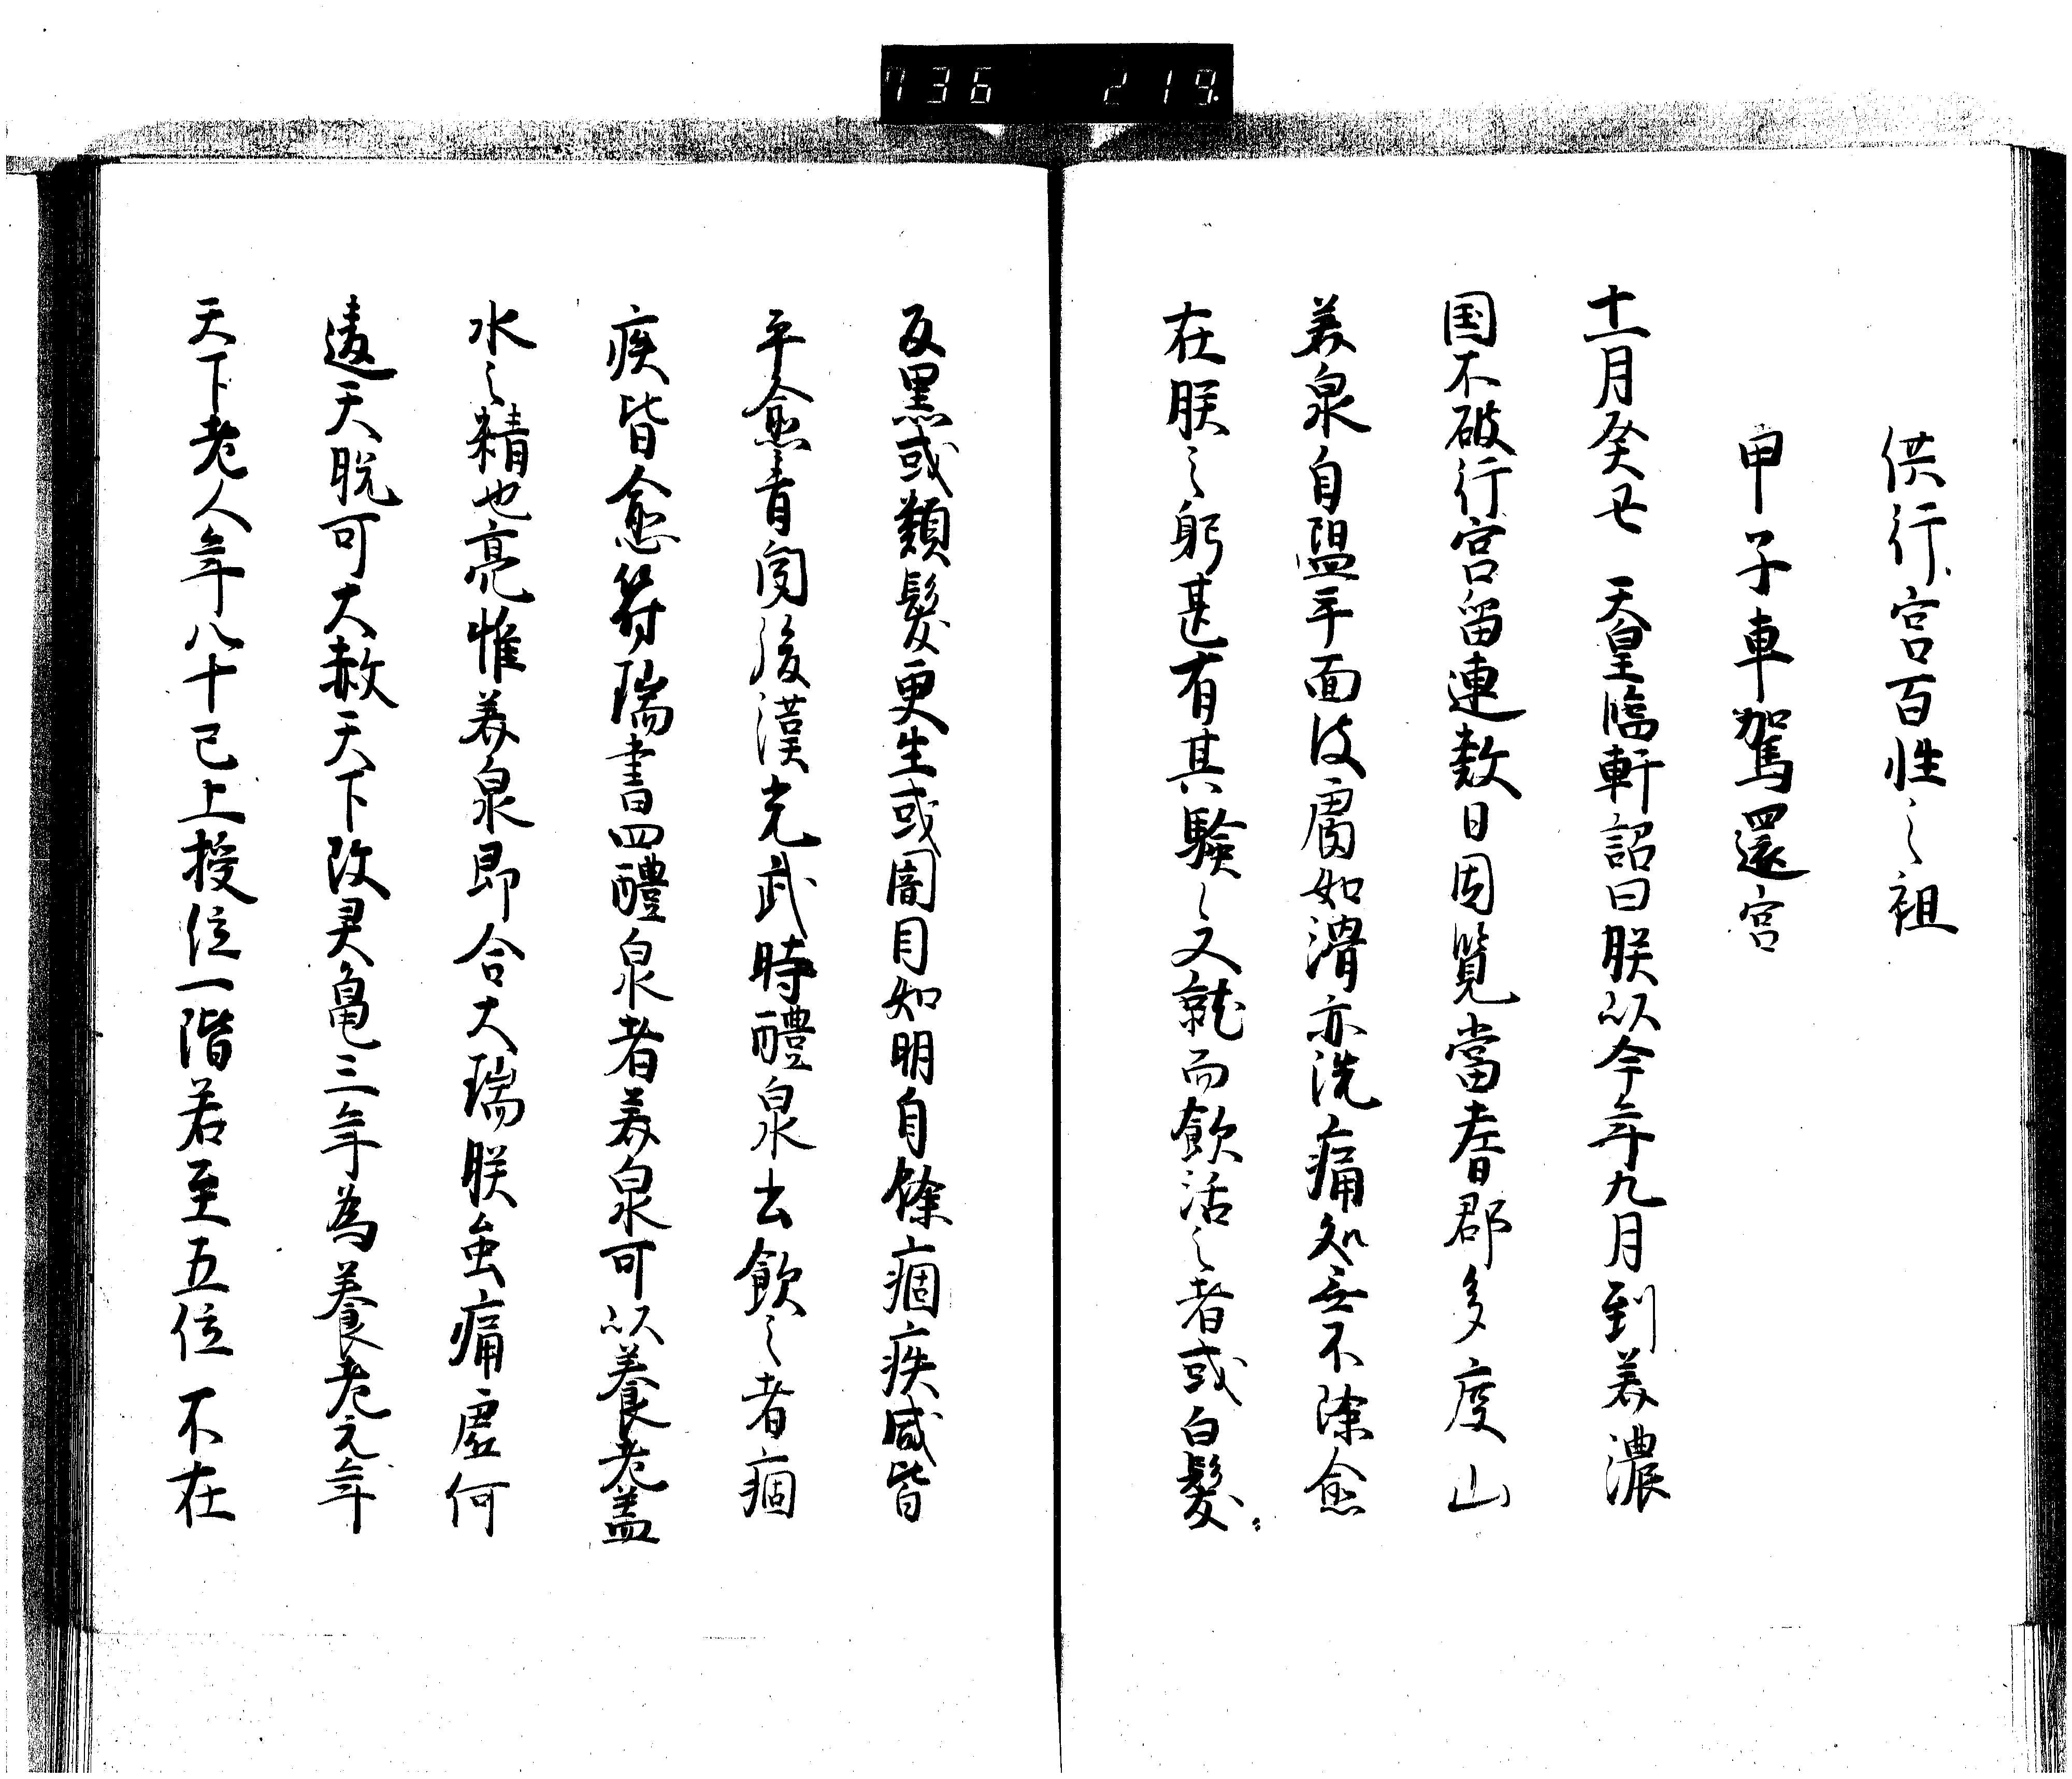 736 219
供行宮百姓之祖
申子車駕還宮
十一月癸丑 天皇臨軒詔曰朕以今年九月到美濃
国不破行宮留連数日因覧當耆郡多度山
美泉自盥手面皮膚如滑亦洗痛処無不除愈
在朕之躬甚有其験々又就而飲浴之者或白髪
反黒或頽髪更生或闇目如明自餘痼疾咸皆
平愈昔聞後漢光武時醴泉出飲之者痼
疾皆愈符瑞書曰醴泉者美泉可以養老盖
水之精也寔惟美泉即合大瑞朕虽痛虚何
違天貺可大赦天下改霊亀三年為養老元年
天下老人年八十已上授位一階若至五位不在